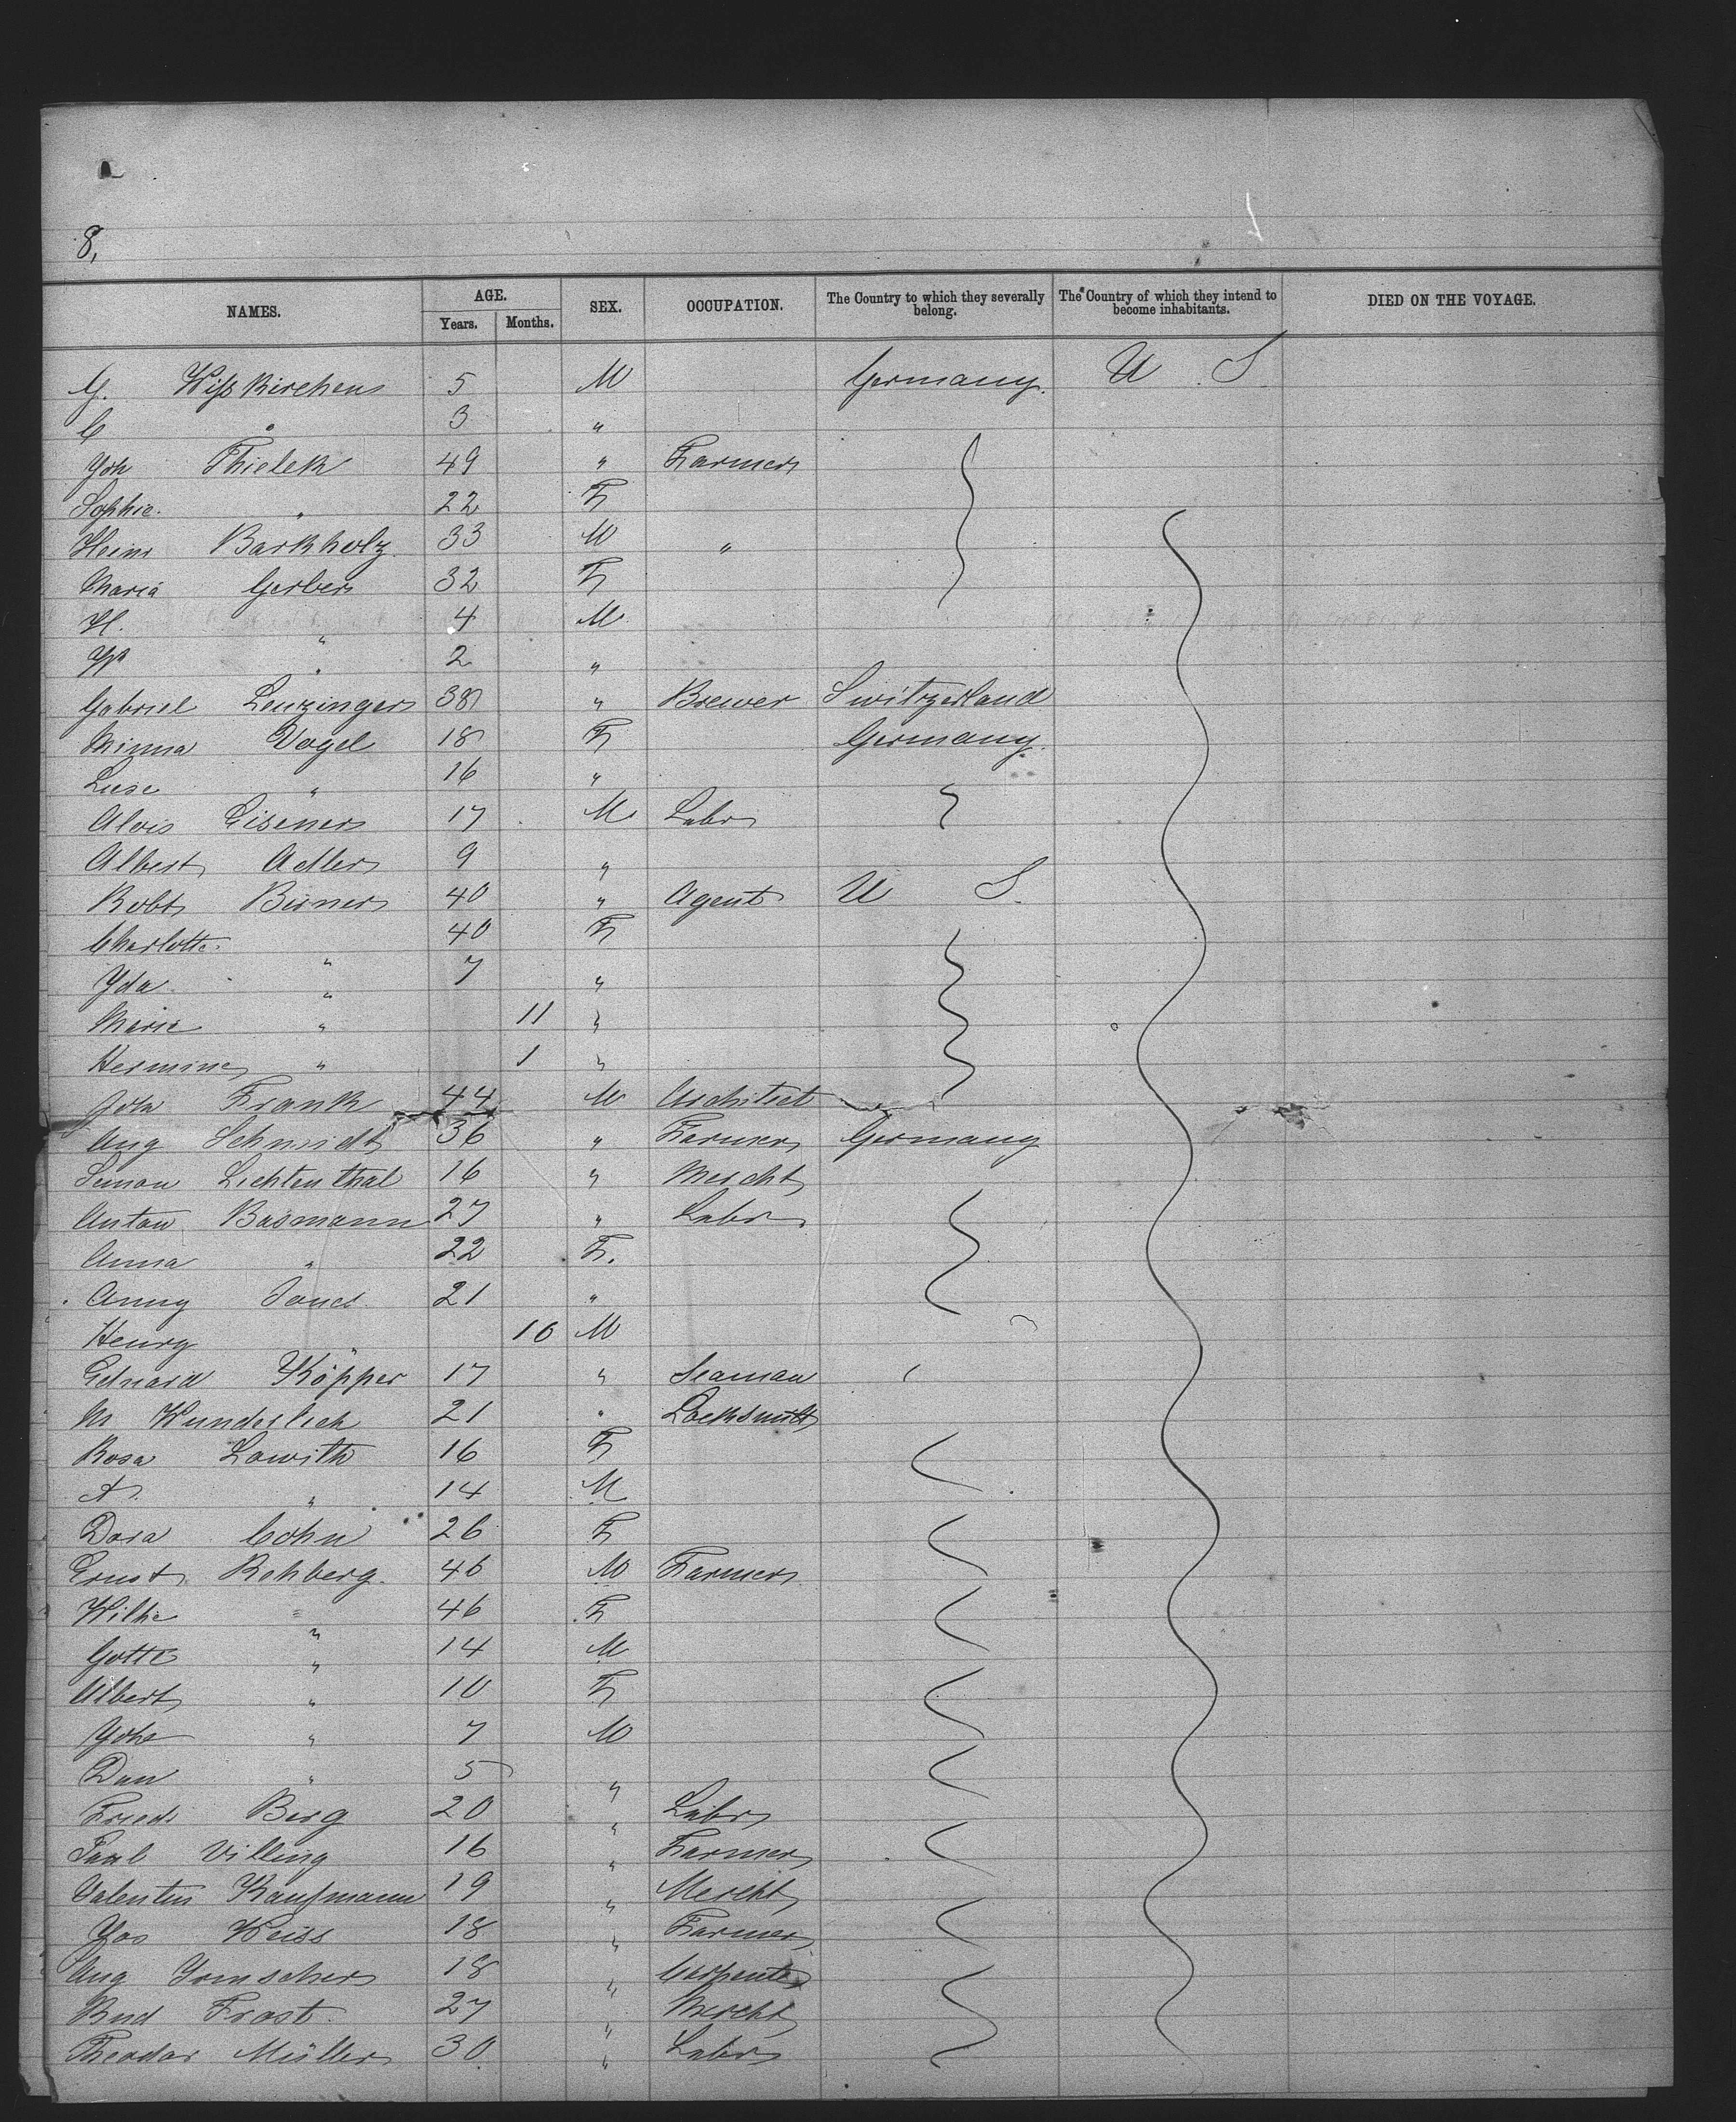 8,
NAMES. AGE. Years. Months. SEX. OCCUPATION. The Country to which they severally belong. The Country of which they intend to become inhabitants. DIED ON THE VOYAGE.
G. Wißkirchens 5 M Germany. U S
C " 3 "
Joh Thielek 49 " Farmer
Sophie " 22 F
Heinr Barkholz 33 M "
Maria Gerber 32 F
H. " 4 M
" 2 "
Gabriel Leuzinger 38 " Brewer Switzerland
Minna Vogel 18 F Germany.
Luise " 16 "
Alois Eisener 17 M Labr
Albert Adler 9 "
Robt Birner 40 " Agent U S.
Charlotte " 40 F
Yda " 7 "
Marie " 11 "
Hermine " 1 "
John Frank 44 M Architect
Aug Schmidt 36 " Farmer Germany
Simon Lichtenthal 16 " Mercht
Anton Basmann 27 " Labr
Anna " 22 F.
Anny 21 "
Henry " 10 M
Eduard Köpper 17 " Seaman
M Wunderlich 21 " Locksmith
Rosa Lowith 16 F
A. " 14 M
Dora Cohn 26 F
Ernst Rehberg. 46 M Farmer
Wilhe " 46 F
Gottl " 14 M
Albert " 10 F
Johe " 7 M
Dan " 5 "
Friedr Berg 20 " Labr
Paul Villing 16 " Farmer
Valentin Kaufmann 19 " Mercht
Jos Weiss 18 " Farmer
Aug Jomscher 18 " Carpenter
Rud Frost 27 " Mercht
Theodor Müller 30 " Labr